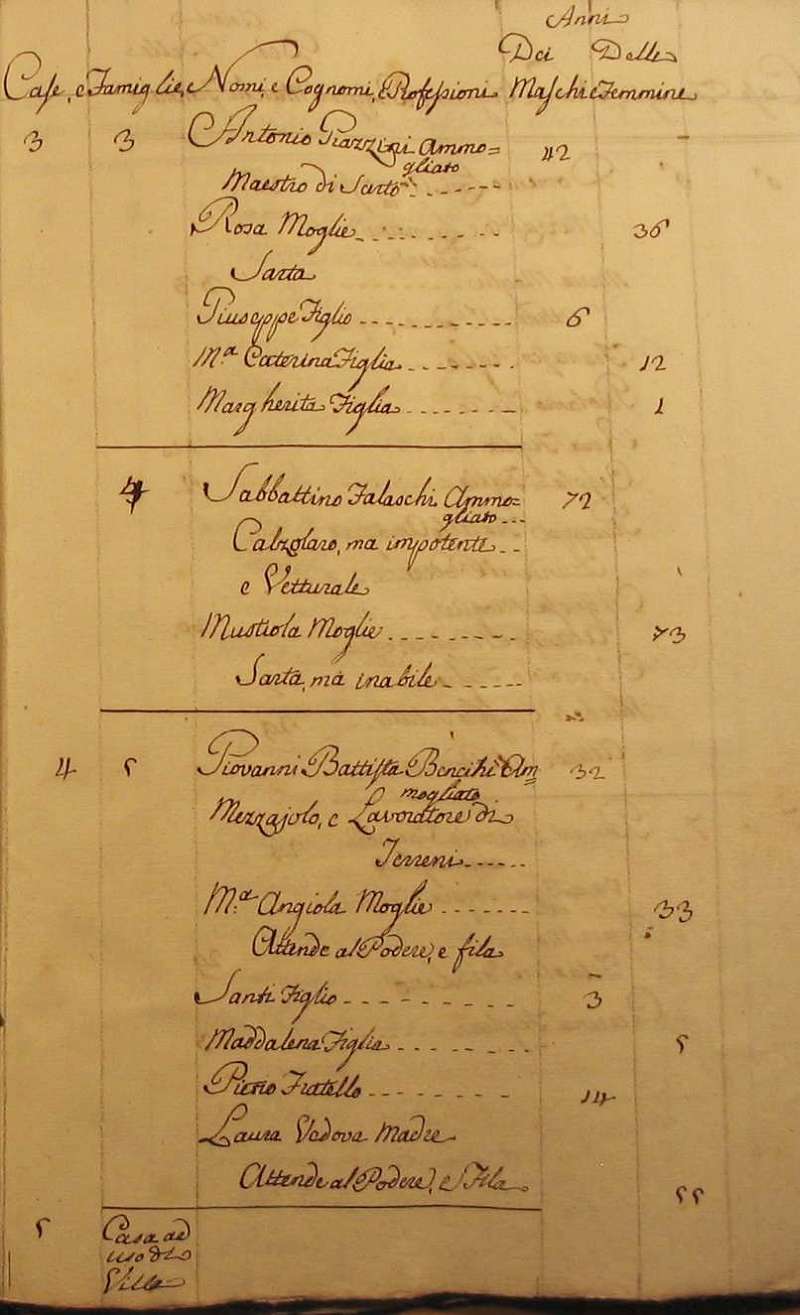 Anni
Dei Delle
Case, e Famiglie, e Nomi, e Cognomi, e Professioni Maschi e Femmine
3 3 Antonio Piazzini Ammo= 42
gliato
Maestro di Sarto
Rosa Moglie 36
Sarta
Giuseppe Figlio 6
M.a Caterina Figlia 12
Margherita Figlia 1
4 Sabbattino Falaschi Ammo= 72
gliato
Calzolaro, ma impotente
e Vetturale
Mustiola Moglie 73
Sarta, ma inabile
4 5 Giovanni Battista Bencihi Am= 32
mogliato
Mezzajolo, e Lavoratore di
Terreni
M.a Angiola Moglie 33
Attende al Podere, e fila
Santi Figlio 3
Maddalena Figlia 5
Pietro Fratello 14
Laura Vedova Madre
Attende al Podere, e Fila 55
5 Casa ad
uso di
Villa